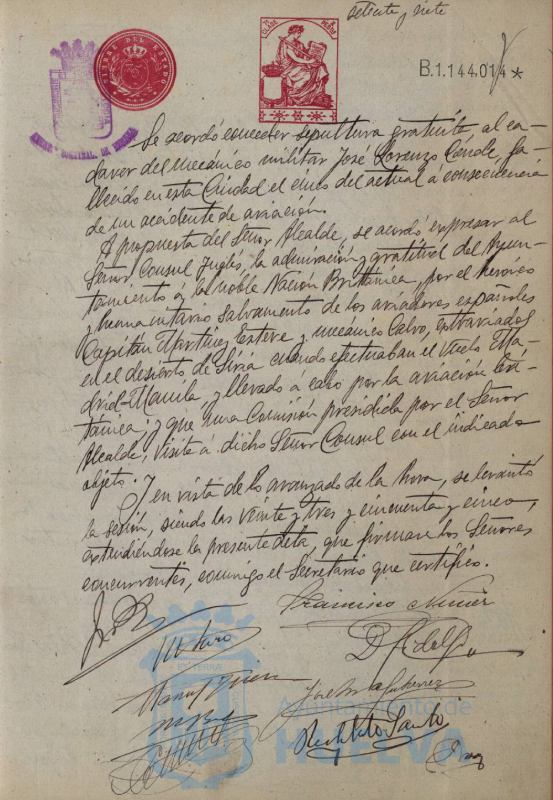 setenta y siete
TIMBRE DEL ESTADO
CLASE
B.1.144.014 *
Se acordó conceder sepultura gratuita, al ca-
daver del mecanico militar José Lorenzo Conde, fa-
llecido en esta Ciudad el cinco del actual a consecuencia
de un accidente de aviación.
A propuesta del Señor Alcalde, se acordó expresar al
Señor Consul Inglés, la admiración y gratitud del Ayun-
tamiento á la noble Nación Britanica, por el heroico
y humanitario salvamento de los aviadores españoles
Capitán Martínez Esteve y mecanico Calvo, extraviados
en el desierto de Siria cuando efectuaban el vuelo Ma-
drid-Manila, y llevado a cabo por la aviación Bri-
tánica; y que una Comisión presidida por el Señor
Alcalde, visite á dicho Señor Consul con el indicado
objeto.
Y en vista de lo avanzado de la hora, se levantó
la sesión, siendo las veinte y tres y cincuenta y cinco,
extendiéndose la presente acta, que firman los Señores
concurrentes, conmigo el Secretario que certifico.
Francisco
José Gutierrez
Restituto Santos
Ayuntamiento de
HUELVA